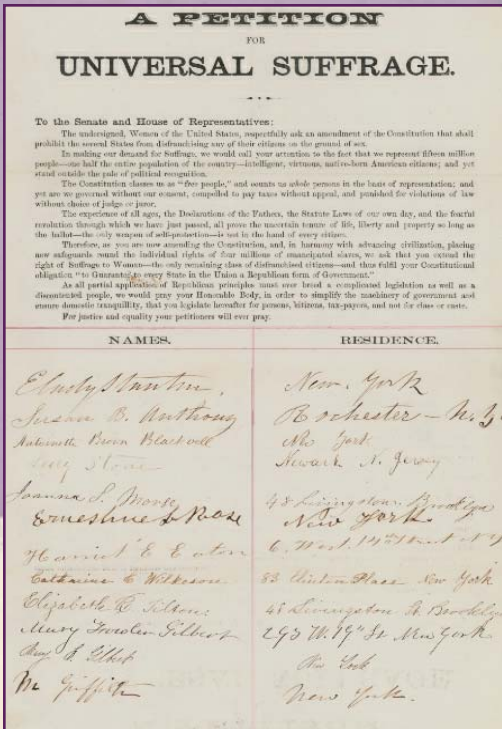 A PETITION
FOR
UNIVERSAL SUFFRAGE.
To the Senate and House of Representatives:
The undersigned, Women of the United States, respectfully ask an amendment of the Constitution that shall
prohibit the several States from disfranchising any of their citizens on the ground of sex.
In making our demand for Suffrage, we would call your attention to the fact that we represent fifteen million
people—one half the entire population of the country—intelligent, virtuous, native-born American citizens; and yet
stand outside the pale of political recognition.
The Constitution classes us as "free people," and counts us whole persons in the basis of representation; and
yet are we governed without our consent, compelled to pay taxes without appeal, and punished for violations of law
without choice of judge or juror.
The experience of all ages, the Declarations of the Fathers, the Statute Laws of our own day, and the fearful
revolution through which we have just passed, all prove the uncertain tenure of life, liberty and property so long as
the ballot—the only weapon of self-protection—is not in the hand of every citizen.
Therefore, as you are now amending the Constitution, and, in harmony with advancing civilization, placing
new safeguards round the individual rights of four millions of emancipated slaves, we ask that you extend the
right of Suffrage to Women—the only remaining class of disfranchised citizens—and thus fulfil your Constitutional
obligation "to Guarantee to every State in the Union a Republican form of Government."
As all partial application of Republican principles must ever breed a complicated legislation as well as a
discontented people, we would pray your Honorable Body, in order to simplify the machinery of government and
ensure domestic tranquillity, that you legislate hereafter for persons, citizens, tax-payers, and not for class or caste.
For justice and equality your petitioners will ever pray.
NAMES. RESIDENCE.
E Cady Stanton, New York
Susan B. Anthony Rochester - N.Y.
Antoinette Brown Blackwell New York
Lucy Stone Newark N. Jersey
Joanna S. Morse 48 Livingston. Brooklyn
Ernestine L Rose New York
Harriet E Eaton 6. West. 14th Street N.Y
Catharine C Wilkeson 83 Clinton Place New York
Elizabeth R Tilton: 48 Livingston St. Brooklyn
Mary Fowler Gilbert 293 W. 19th St New York
Gilbert New York
M Griffith New York.